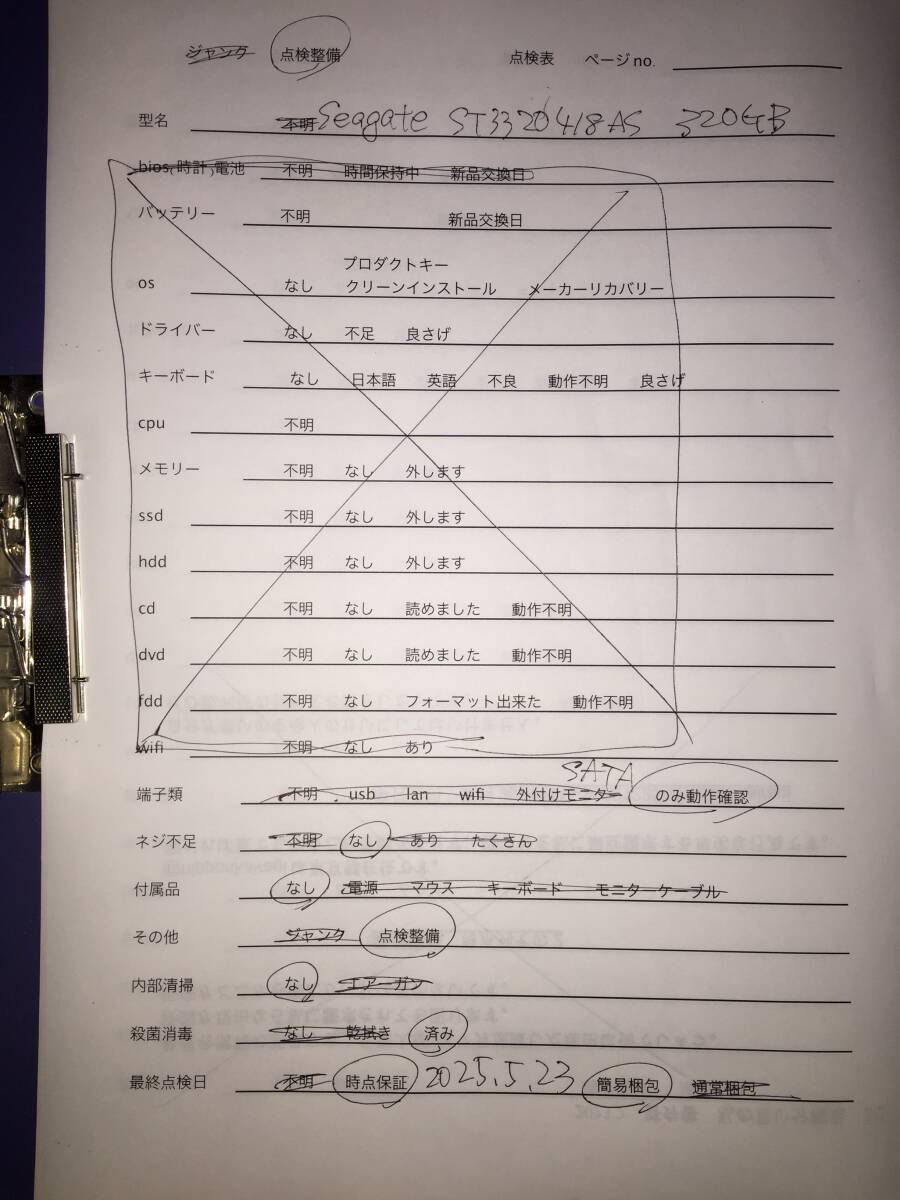 ジャンク 点検整備 点検表 ページno.
型名 不明 Seagate ST3320418AS 320GB
bios(時計)電池 不明 時間保持中 新品交換日
バッテリー 不明 新品交換日
プロダクトキー
os なし クリーンインストール メーカーリカバリー
ドライバー なし 不足 良さげ
キーボード なし 日本語 英語 不良 動作不明 良さげ
cpu 不明
メモリー 不明 なし 外します
ssd 不明 なし 外します
hdd 不明 なし 外します
cd 不明 なし 読めました 動作不明
dvd 不明 なし 読めました 動作不明
fdd 不明 なし フォーマット出来た 動作不明
wifi 不明 なし あり
SATA
端子類 不明 usb lan wifi 外付けモニター のみ動作確認
ネジ不足 不明 なし あり たくさん
付属品 なし 電源 マウス キーボード モニターケーブル
その他 ジャンク 点検整備
内部清掃 なし エアーガン
殺菌消毒 なし 乾拭き 済み
最終点検日 不明 時点保証 2025.5.23 簡易梱包 通常梱包